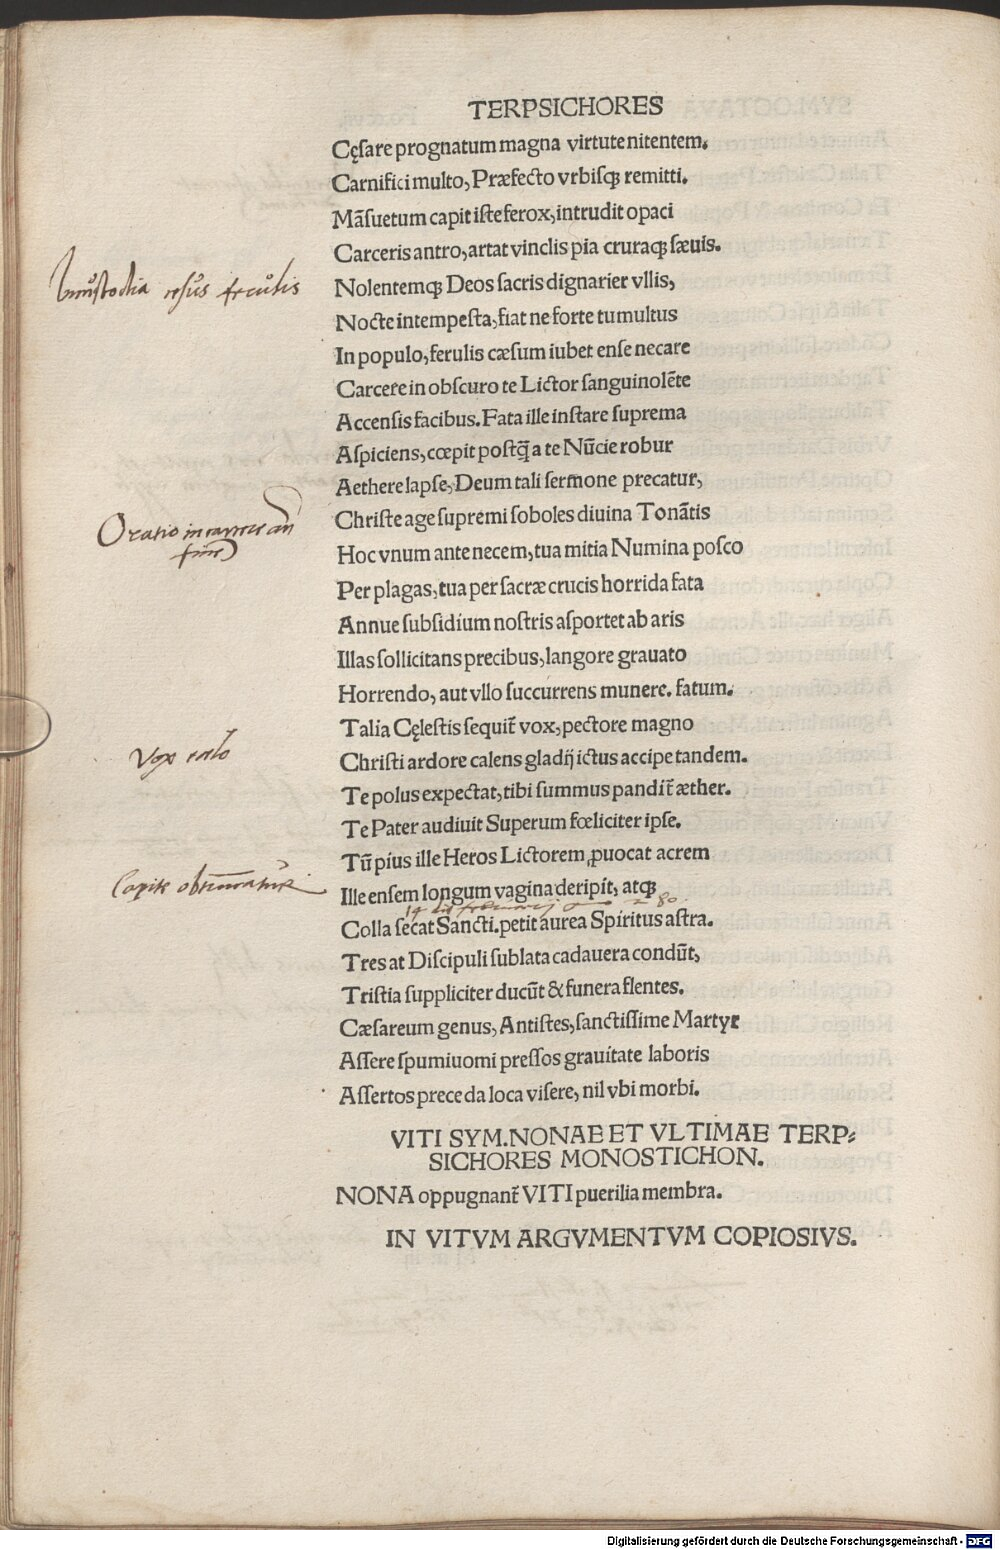 TERPSICHORES
Cęsare prognatum magna virtute nitentem.
Carnifici multo, Præfecto vrbisqꝫ remitti.
Mãsuetum capit iste ferox, intrudit opaci
Carceris antro, artat vinclis pia cruraqꝫ sæuis.
Nolentemqꝫ Deos sacris dignarier vllis,
Nocte intempesta, fiat ne forte tumultus
In populo, ferulis cæsum iubet ense necare
Carcere in obscuro te Lictor sanguinolẽte
Accensis facibus. Fata ille instare suprema
Aspiciens, cœpit postq̃ a te Nũcie robur
Aethere lapse, Deum tali sermone precatur,
Christe age supremi soboles diuina Tonãtis
Hoc vnum ante necem, tua mitia Numina posco
Per plagas, tua per sacræ crucis horrida fata
Annue subsidium nostris asportet ab aris
Illas sollicitans precibus, langore grauato
Horrendo, aut vllo succurrens munere. fatum.
Talia Cęlestis sequit̃ vox, pectore magno
Christi ardore calens gladij ictus accipe tandem.
Te polus expectat, tibi summus pandit̃ æther.
Te Pater audiuit Superum fœliciter ipse.
Tũ pius ille Heros Lictorem ꝓuocat acrem
Ille ensem longum vagina deripit, atqꝫ
Colla secat Sancti. petit aurea Spiritus astra.
Tres at Discipuli sublata cadauera condũt,
Tristia suppliciter ducũt & funera flentes.
Cæsareum genus, Antistes, sanctissime Martyr
Assere spumiuomi pressos grauitate laboris
Assertos prece da loca visere, nil vbi morbi.
VITI SYM. NONAE ET VLTIMAE TERP⸗
SICHORES MONOSTICHON.
NONA oppugnant̃ VITI puerilia membra.
IN VITVM ARGVMENTVM COPIOSIVS.
In custodia cesus ferulis
Oratio in carcere an̄
finē
Vox celo
Capite obtruncatur
Digitalisierung gefördert durch die Deutsche Forschungsgemeinschaft - DFG